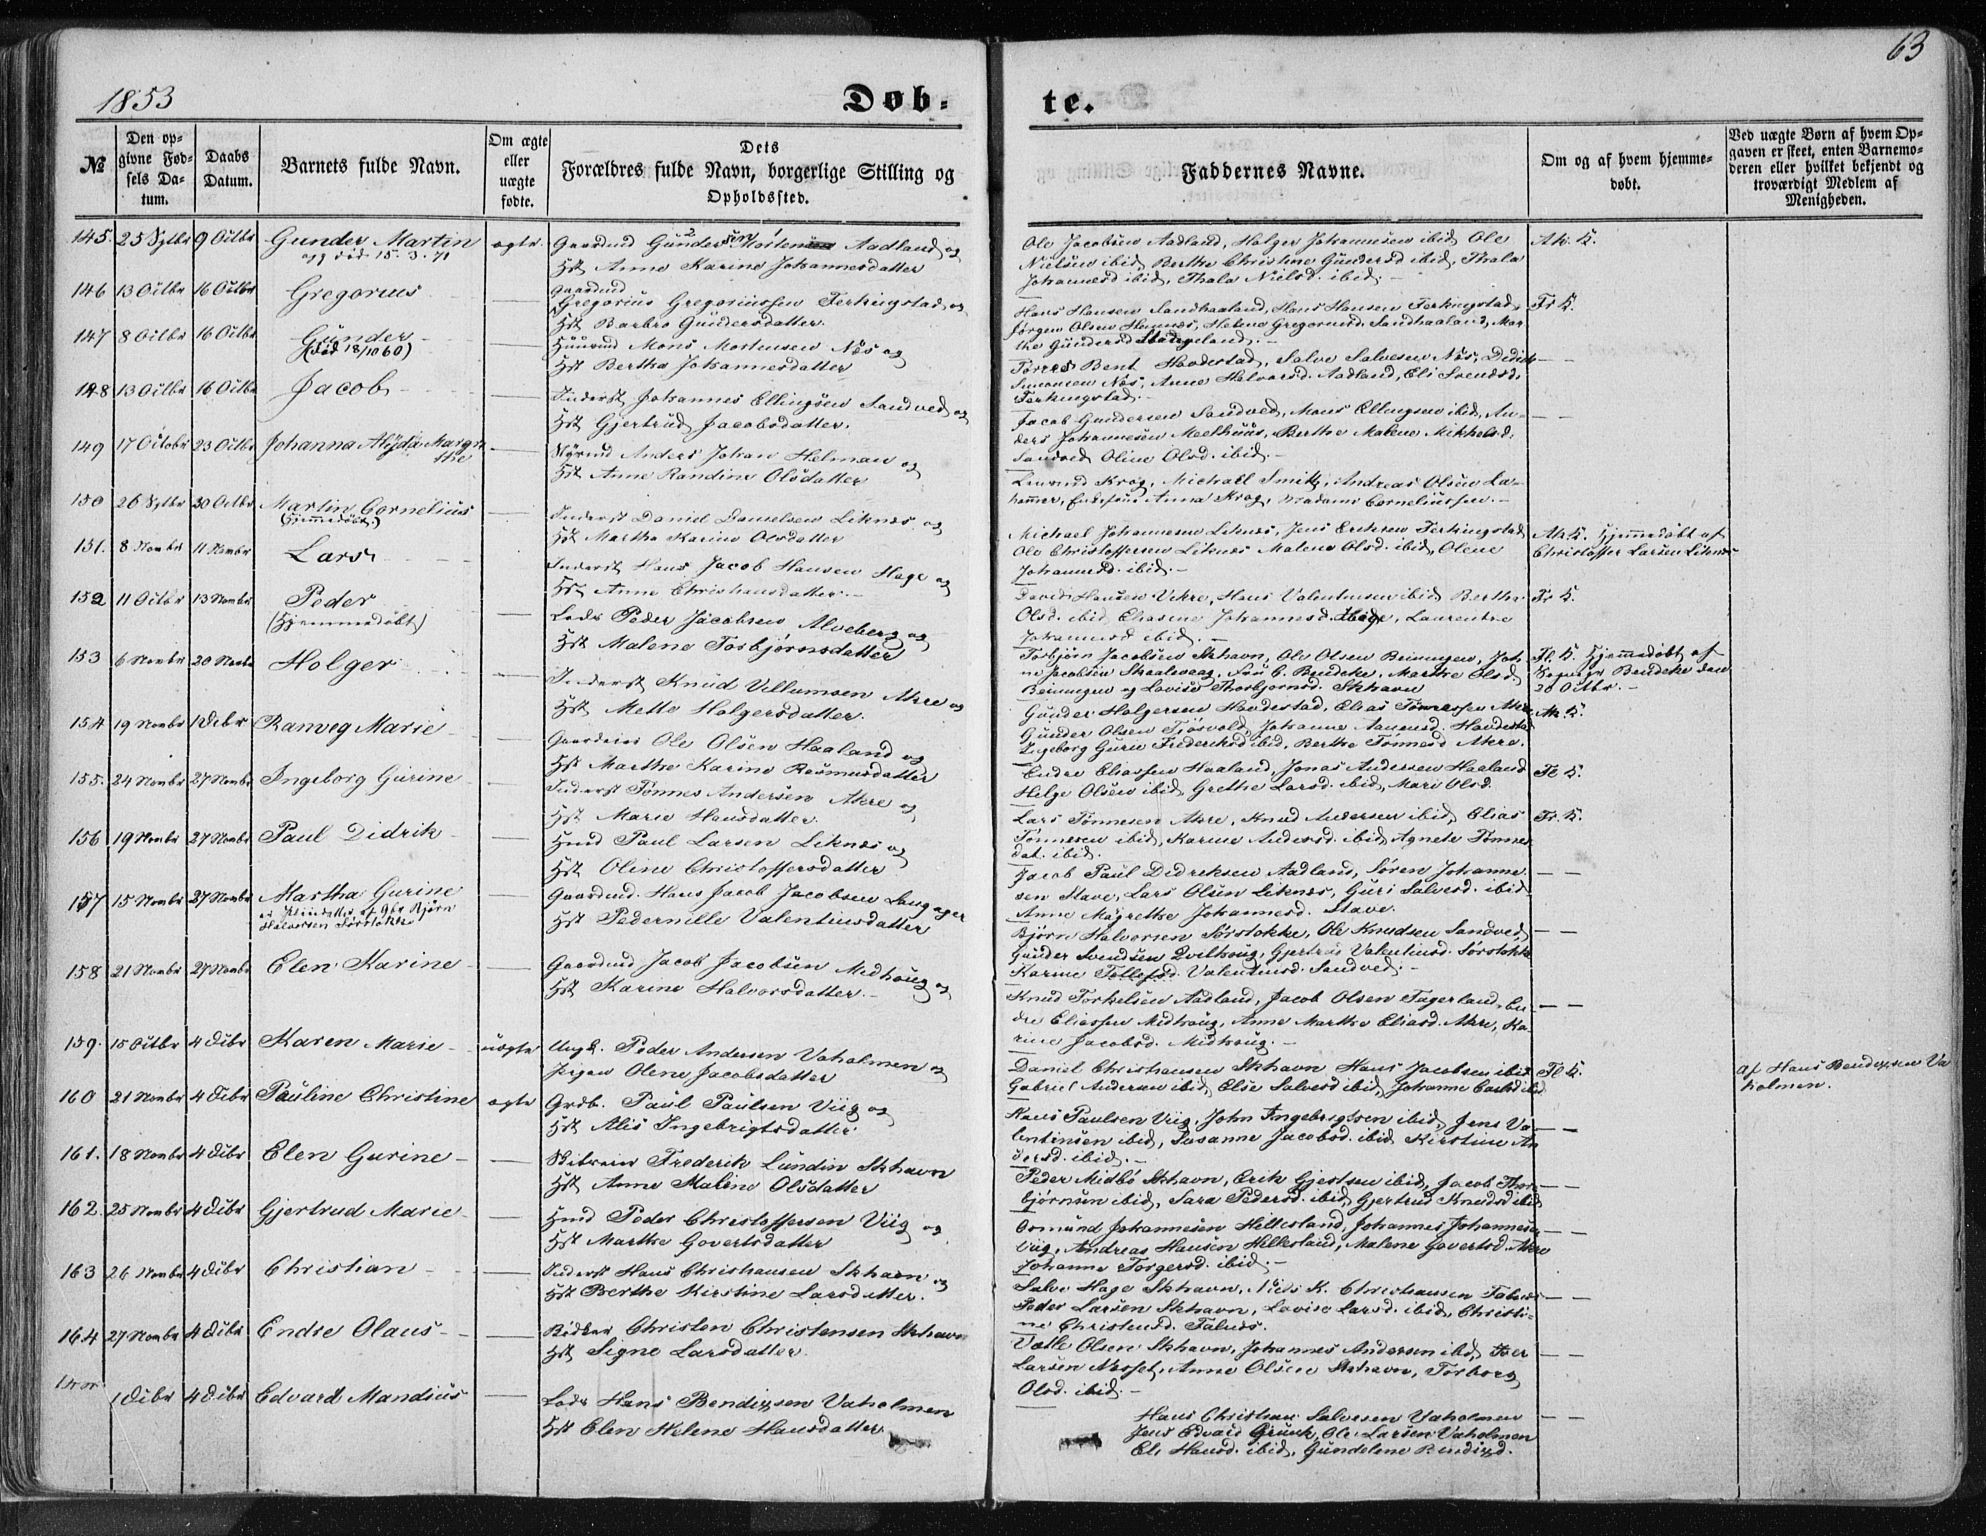 63
1853
Døb-
te.
№
Den op-
givne Fød-
sels Da-
tum.
Daabs
Datum.
Barnets fulde Navn.
Om ægte
eller
uægte
fødte.
Dets
Forældres fulde Navn, borgerlige Stilling og
Opholdssted.
Faddernes Navne.
Om og af hvem hjemme-
døbt.
Ved uægte Børn af hvem Op-
gaven er skeet, enten Barnemo-
deren eller hvilket bekjendt og
troværdigt Medlem af
Menigheden.
145. 25 Sptbr 9 Octbr Gunder Martin ægte Gaardmd Gunder Morten Aadland og
død 15.3.71
Hst Anne Karine Johannesdatter
Ole Jacobsen Aadland, Holger Johannesen ibid, Ole
Nielsen ibid, Berthe Christine Gundersd ibid, Thala
Johannesd ibid, Thala Nielsd. ibid.
Ak. K.
146 13 Octbr 16 Octbr Gregorius
Gaardmd
Gregorius Gregoriussen Ferkingstad og
Hst Barbro Gundersdatter.
Hans Hansen Sandhaaland, Hans Hansen Ferkingstad,
Jørgen Olsen Hemnæs, Helene Gregoriusd Sandhaaland, Mar-
the Gundersd Stangeland.
Fr. K.
147 8 Octbr 16 Octbr Gunder
(død 18/10 60)
Huusmd Mons Mortensen Næs og
Hst Bertha Johannesdatter
Tørres Bent Havdestad, Salve Salvesen Næs, Didrik
Simonsen Næs, Anne Halvorsd. Aadland, Eli Svendsd.
Ferkingstad.
148 13 Octbr 16 Octbr Jacob
Inderst Johannes Ellingsen Sandved og
Hst Gjertrud Jacobsdatter.
Jacob Gundersen Sandved, Mons Ellingsen ibid, An-
ders Johannesen Meethuus, Berthe Malene Mikkelsd.
Sandved Oline Olsd. ibid.
149 17 October 23 Octbr Johanna Alyda Margre
the
Styrmd Anders Johan Helman og
Hst Anne Randine Olsdatter
Krog, Michaell Smitt, Andreas Olsen La-
hammer, Anna Krog, Madame Corneliussen.
150 26 Sptbr 30 Octbr Martin Cornelius
(Hjemmedøbt.)
Inderst Daniel Danielsen Liknæs og
Hst Martha Karine Olsdatter
Michael Johannesen Liknæs, Jens Eriksen Ferkingstad
Ole Christoffersen Liknæs Malene Olsd. ibid, Olene
Johannesd. ibid.
Ak. K. Hjemmedøbt af
Christoffer Larsen Liknæs
151. 8 Novbr 11 Novbr Lars
Inderst Hans Jacob Hansen Hage og
Hst Anne Christiansdatter.
David Hansen Vikre, Hans Valentinsen ibid Bertha
Olsd. ibid, Johannesd. ibid, Laurentze
Johannesd ibid.
Fr. K.
152 11 Octbr 13 Novbr Peder
(Hjemmedøbt)
Lods Peder Jacobsen Alveberg og
Hst Malene Torbjørnsdatter
Torbjørn Jacobsen Skhavn, Ole Olsen Beiningen, Joh-
ne Jacobsen Skaalevag, C. Bendeke, Marthe Olsd.
Beiningen og Lovise Thorbjørnsd. Skhavn
Fl. K. Hjemmedøbt af
Bendeke den
20 Octbr.
153 6 Novbr 20 Novbr Holger
Inderst Knud Villumsen Akre og
Hst Mette Holgersdatter.
Gunder Holgersen Havdestad, Elias Tønnessen Akre
Gunder Olsen Tjøsvold, Johanne Aanensd. Havdestad
Ingeborg Gurie Frederiksd ibid, Berthe Tønnesd Akre.
Ak. K.
154 19 Novbr 1 Decbr Ranveg Marie
Ole Olsen Haaland og
Hst Marthe Karine Rasmusdatter
Endre Eliassen Haaland, Jonas Andersen Haaland
Helge Olsen ibid, Grethe Larsd. ibid, Mari Olsd.
Fl. K.
155. 24 Novbr 27 Novbr Ingeborg Gurine
Inderst Tønnes Andersen Akre og
Hst Marie Hansdatter.
Lars Tønnesen Akre, Knud Andersen ibid, Elias
Tønnesen ibid, Karine Andersd. ibid, Agnete Tønnes
dat. ibid.
Fr. K.
156 19 Novbr 27 Novbr Paul Didrik
Hmd Paul Larsen Liknæs og
Hst Oline Christoffersdatter
Jacob Paul Didriksen Aadland, Søren Johanne-
sen Stave, Lars Olsen Liknæs, Guri Salvesd. ibid
Anne Magrethe Johannesd. Stave.
157 15 Novbr 27 Novbr Martha Gurine
Bjørn
Halvorsen Sørstokke
Gaardmd. Hans Jacob Jacobsen Langager
Hst Pedernille Valentinsdatter
Bjørn Halvorsen Sørstokke, Ole Knudsen Sandved,
Gunder Svendsen Dvelhoug, Gjertrud Valentinsd. Sørstokke
Karine Tollefsd. Valentinsd. Sandved.
158 21 Novbr 27 Novbr Elen Karine
Gaardmd Jacob Jacobsen Midhoug og
Hst Karine Halvorsdatter.
Knud Torkelsen Aadland, Jacob Olsen Fagerland, En-
dre Eliassen Midhoug, Anne Marthe Eliasd. Akre, Ka-
rine Jacobsd. Midhoug.
159. 15 Octbr 4 Decbr Karen Marie uægte Ungk. Peder Andersen Vaholmen og
Pigen Olene Jacobsdatter
Daniel Christiansen Skhavn Hans Jacobsen ibid
Gabriel Andersen ibid, Else Salvesd ibid, Johanne ibid
Fl. K.
Af Hans Bendixsen Va
holmen.
160 21 Novbr 4 Decbr Pauline Christine ægte Grdb. Paul Paulsen Viig og
Hst Alis Ingebrigtsdatter.
Hans Paulsen Viig, John Ingebrigtsen ibid, Jens Va-
lentinsen ibid, Susanne Jacobsd. ibid Kirstine An
dersd. ibid.
161. 18 Novbr 4 Decbr Elen Gurine
Frederik Lundin Skhavn
Hst Anne Malene Olsdatter
Peder Midbø Skhavn, Erik Gjertsen ibid, Jacob Thor-
bjørnsen ibid, Sara Pedersd. ibid Gjertrud Knudsd ibid
162. 25 Novbr 4 Decbr Gjertrud Marie
Hmd Peder Christoffersen Viig og
Hst Marthe Govertsdatter
Osmund Johannesen Hellesland, Johannes Johannesen
Viig, Andreas Hansen Hillesland, Malene Govertsd. Akre
Johanne Torgersd. ibid.
163 26 Novbr 4 Decbr Christian
Inderst Hans Christiansen Skhavn og
Hst Berthe Kirstine Larsdatter.
Salve Hage Skhavn, Niels K. Christiansen Falnes
Peder Larsen Skhavn, Lovise Larsd. ibid, Christi-
ne Christensd. Falnæs.
164 27 Novbr 4 Decbr Endre Olaus
Bødker Christen Christensen Skhavn
Hst Signe Larsdatter.
Vatle Olsen Skhavn, Johannes Andersen ibid, Iver
Larsen Nesset, Anne Olsen Skhavn, Torborg
Olsd. ibid.
1 Decbr 4 Decbr Edvard Mandius
Lods Hans Bendixsen Vaholmen
Hst Elen Helene Hansdatter.
Hans Christian Salvesen Vaholmen
Jens Edvard Gruuk, Ole Larsen Vaholmen
Eli Hansd. ibid, Gundelene Bendixd.